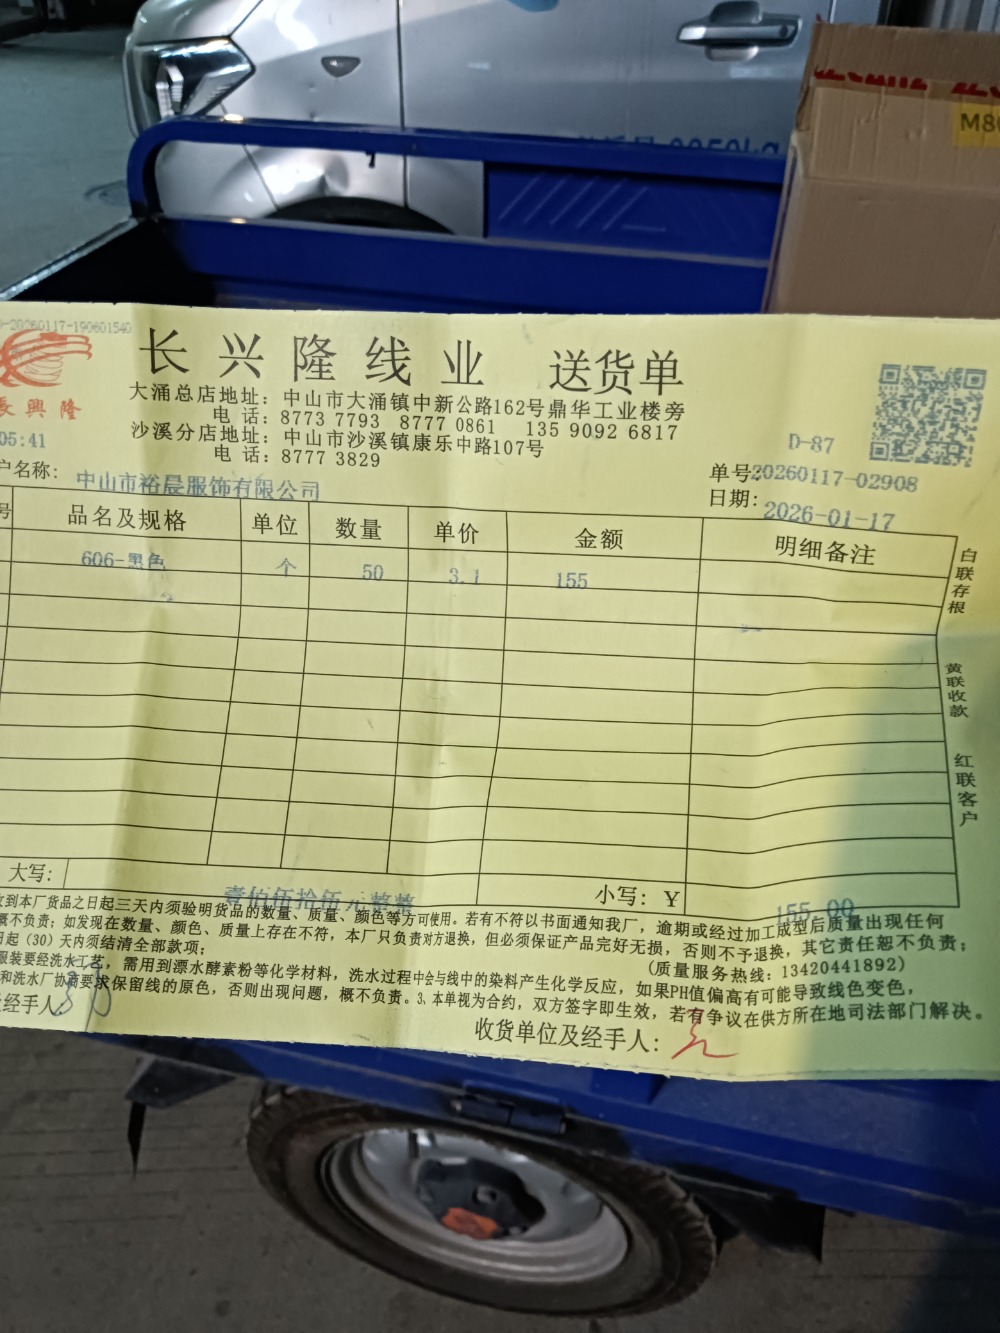 M80
-20260117-190601540
长兴隆线业 送货单
長興隆
大涌总店地址：中山市大涌镇中新公路162号鼎华工业楼旁
电 话：8773 7793 8777 0861 135 9092 6817
沙溪分店地址：中山市沙溪镇康乐中路107号
电 话：8777 3829
05:41
D-87
户名称：中山市裕晨服饰有限公司
单号:20260117-02908
日期：2026-01-17
号 品名及规格 单位 数量 单价 金额 明细备注
606-黑色 个 50 3.1 155
白联存根
黄联收款
红联客户
大写：壹佰伍拾伍元整 小写：￥155.00
到本厂货品之日起三天内须验明货品的数量、质量、颜色等方可使用。若有不符以书面通知我厂，逾期或经过加工成型后质量出现任何
概不负责；如发现在数量、颜色、质量上存在不符，本厂只负责对方退换，但必须保证产品完好无损，否则不予退换，其它责任恕不负责；
日起（30）天内须结清全部款项；
（质量服务热线：13420441892）
服装要经洗水工艺，需用到漂水酵素粉等化学材料，洗水过程中会与线中的染料产生化学反应，如果PH值偏高有可能导致线色变色，
和洗水厂协商要求保留线的原色，否则出现问题，概不负责。3、本单视为合约，双方签字即生效，若有争议在供方所在地司法部门解决。
经手人
收货单位及经手人：